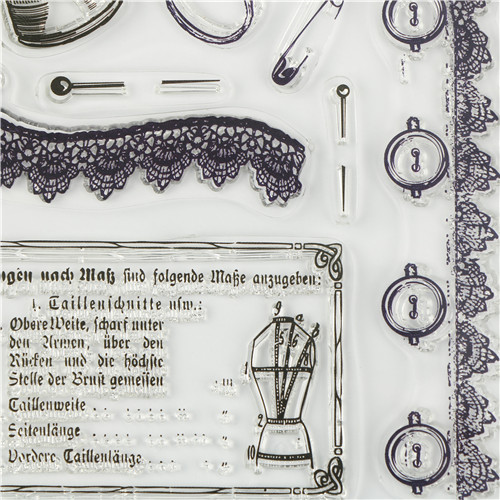 ungen nach Maß sind folgende Maße anzugeben:
1. Taillenschnitte usw.:
Obere Weite, scharf unter
den Armen, über den
Rücken und die höchste
Stelle der Brust gemessen
Taillenweite . . . . . . . . "
Seitenlänge . . . . . . . . "
Vordere Taillenlänge . . . "
9 a
5 6
2
10